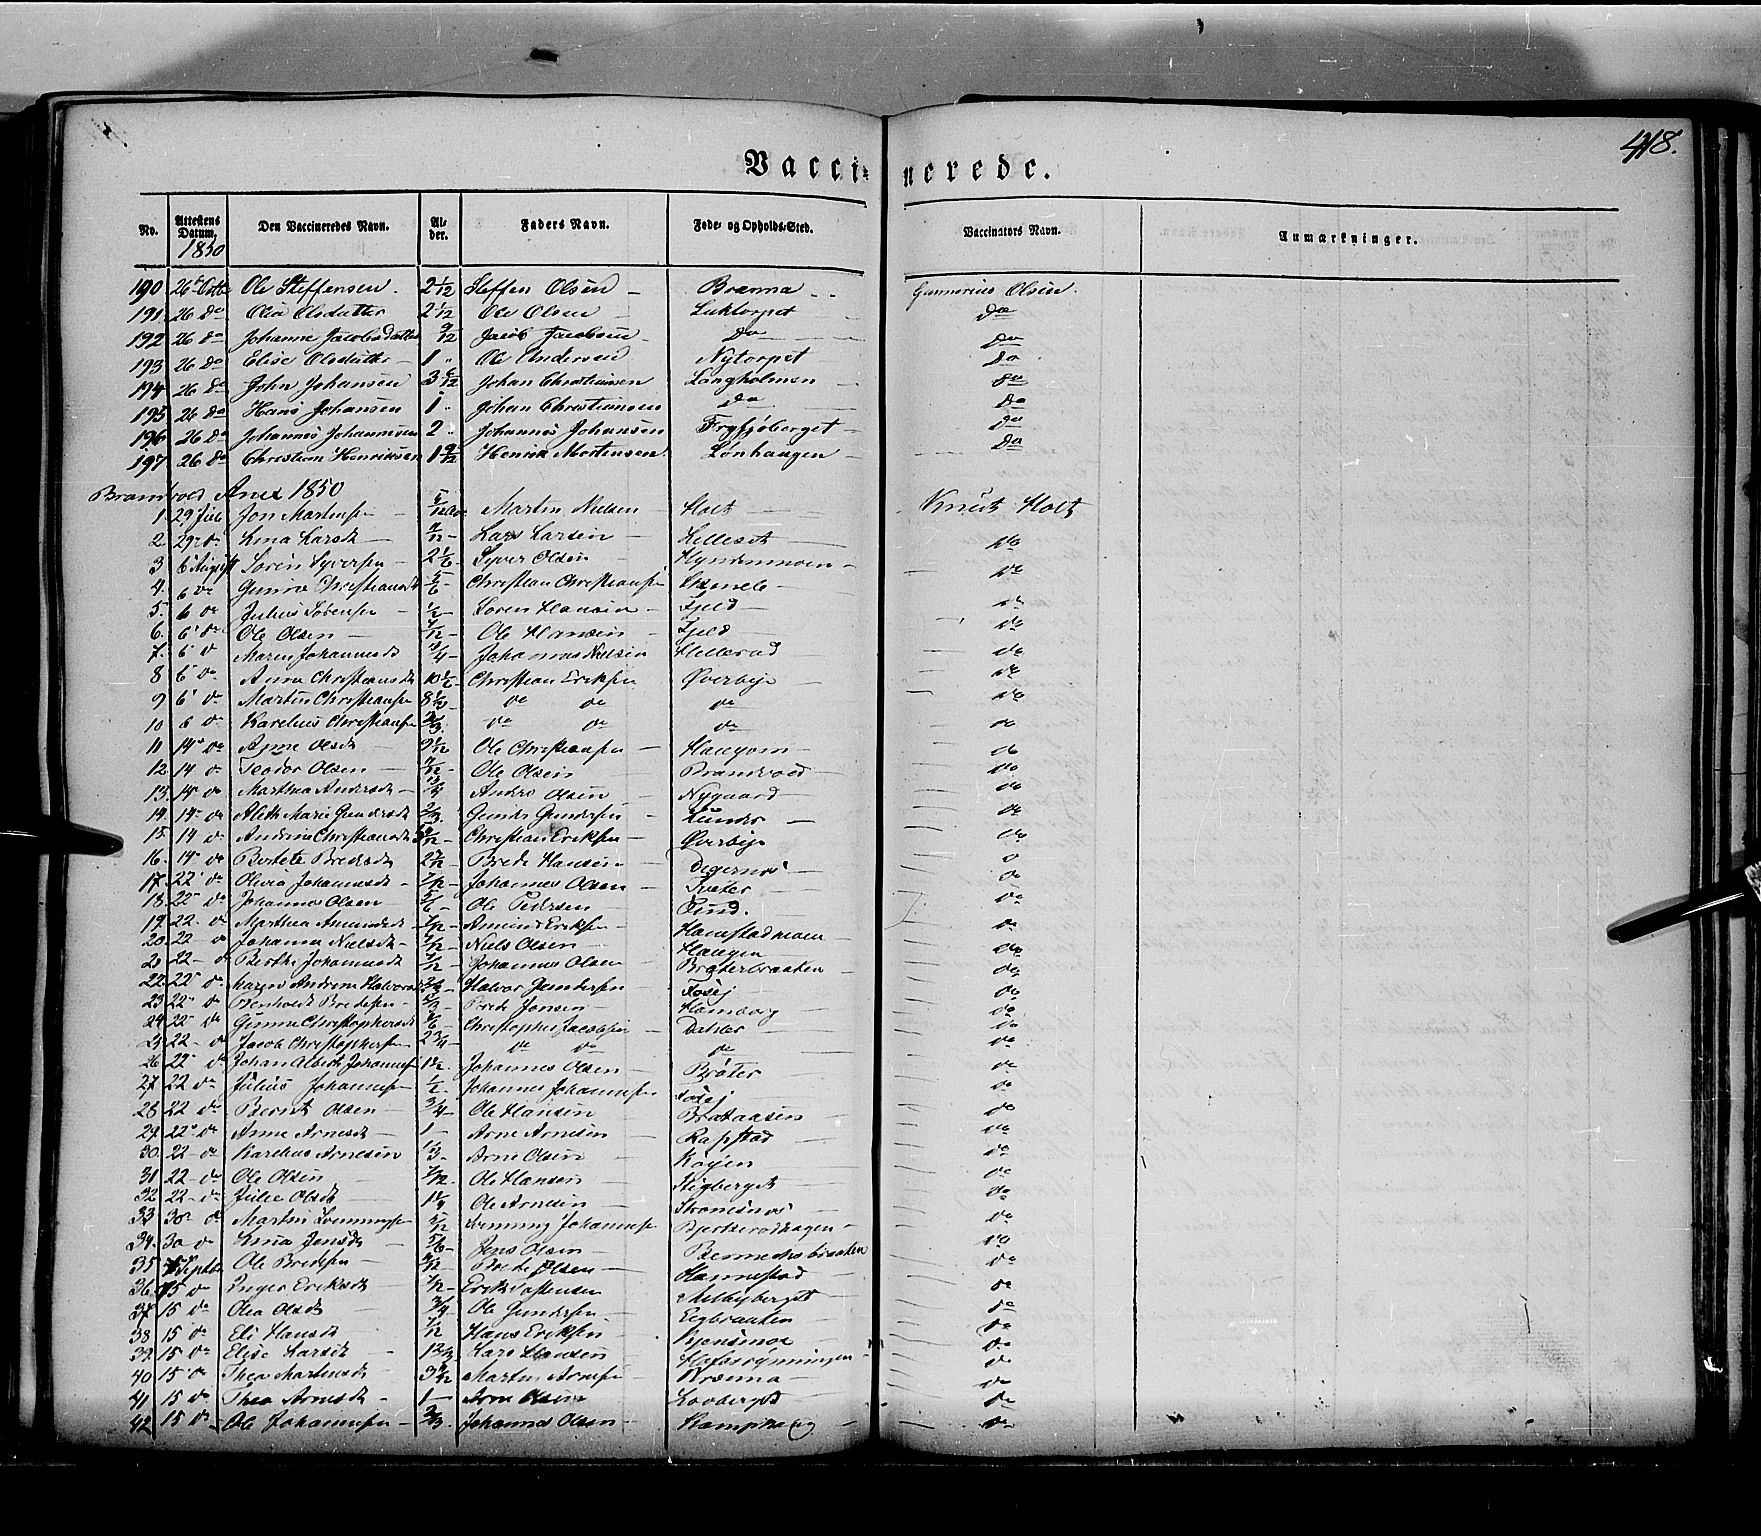 418.
Vaccinerede.
No. Attestens Datum. Den Vaccineredes Navn. Alder. Faders Navn. Føde- og Opholds-Sted. Vaccinators Navn. Anmærkninger.
1850
190 26 Octb Ole Steffensen 2 1/12 Steffen Olsen Brænna Gunnerius Olsen
191 26 do Olia Olsdatter 2 1/12 Ole Olsen do
192 26 do Johanne Jacobsdatter 9/12 Jacob Jacobsen do do
193 26 do Elise Olsdatter 1 Ole Andersen Nytorpet do
194 26 do John Johansen 3 6/12 Johan Christiansen Langholmen do
195 26 do Hans Johansen 1 Johan Christiansen do do
196 26 do Johannes Johannesen 2 Johannes Johansen Frysjøberget do
197 26 do Christian Henriksen 1 9/12 Henrik Mortensen Lønhaugen do
Brandvold Anex 1850
1. 29 Juli Jon Martinsen Martin Nielsen Holt Knud Holt
2. 29 do Lina Larsdt Lars Larsen do
3 6 August Søren Syversen 2 1/6 Syver Olsen Hyndemoen do
4. 6 do Gunine Christiansdt 5/6 Christian Christiansen do
5. 6 do Julius Sørensen 1/2 Søren Hansen Fjeld do
6. 6 do Ole Olsen 7/12 Ole Hansen Fjeld do
7. 6 do Maren Johannesdt 3/4 Johannes Nielsen do
8 6 do Anne Christiansdt 10 1/2 Christian Eriksen Øverbye do
9 6 do Martin Christiansen do do do do
10 6 do Karelius Christiansen 2/3 do do do do
11 14 do Anne Olsdt Ole Christiansen do
12. 14 do Teodor Olsen Ole Olsen Brandvold do
13. 14 do Marthea Andersdt 3/4 Anders Olsen Nygaard do
14 14 do Aleth Marie Gundersdt 2/3 Gunder Gundersen Lunder do
15 14 do Andrine Christiansdt Christian Eriksen Øverbye do
16. 14 do Bertete Bredesdt Brede Hansen Degernes do
17. 22 do Olivia Johannesdt 7/12 Johannes Olsen do
18. 22 do Johannes Olsen 5/6 Ole Pedersen do
19. 22 do Marthea Amundsdt Amund Eriksen Hanestadmoen do
20. 22 do Johanna Nielsdt 7/12 Niels Olsen Haugen do
21 22 do Berthe Johannesdt 7/12 Johannes Olsen Brøterbraaten do
22. 22 do Maren Andrine Halvorsdt Halvor Gundersen do
23 22 do Bredesen Brede Jonsen do
24 22 do Gunine Christophersdt Christopher Jacobsen do
25 22 do Jacob Christophersen 2 3/4 do do do do
26 22 do Johan Albert Johannesen 1 1/2 Johannes Olsen Brøter do
27 22 do Julius Johannesen 1/2 Johannes Johannesen do
28 22 do Bernt Olsen 3/4 Ole Hansen Brataasen do
29. 22 do Anne Arnesdt 1 Arne Arnesen Rafstad do
30. 22 do Karelius Arnesen 1/3 Arne Olsen do
31 22 do Ole Olsen 7/12 Ole Hansen Stigberget do
32 22 do Julie Olsdt 1 1/4 Ole Arnesen do
33 30 do Martin Svenningsen Svenning Johannesen Bjerkerødhagen do
34. 30 do Lina Jensdt 5/6 Jens Olsen do
35 Septbr Ole Bredesen Brede Olsen Hannestad do
36 15 do Inger Eriksdt 7/12 Erik do
37 15 do Olea Olsdt 3/4 Ole Gundersen Egbraaten do
38 15 do Eli Hansdt 7/12 Hans Eriksen do
39. 15 do Elise Larsdt Lars Hansen do
40 15 do Thea Martinsdt Martin Arnesen do
41 15 do Thea Arnesdt 1 Arne Olsen do
42 15 do Ole Johannesen 2/3 Johannes Olsen do